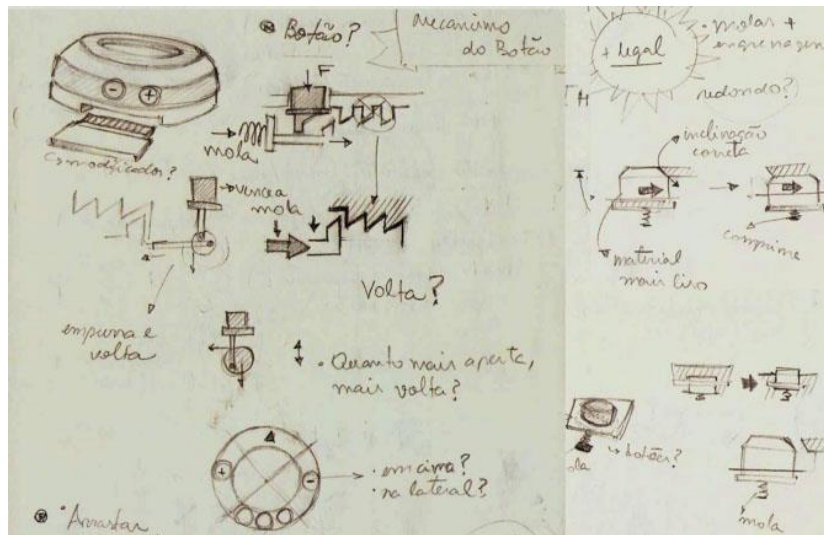 Botão?
Mecanismo
do Botão
F
- +
mola
comodificador?
vence a
mola
empurra e
volta
Volta?
• Quanto mais aperta,
mais volta?
+ -
• em cima?
• na lateral?
• Arrastar
+ legal
• molas +
engrenagem
redondo?
inclinação
correta
comprime
material
mais liso
botão?
mola